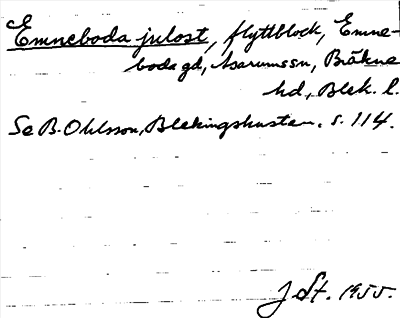 Emneboda julost, flyttblock, Emne-
boda gd, Asarumssn, Bräkne
hd, Blek. l.
Se B. Ohlsson, Blekingskusten. s. 114.
J St. 1955.